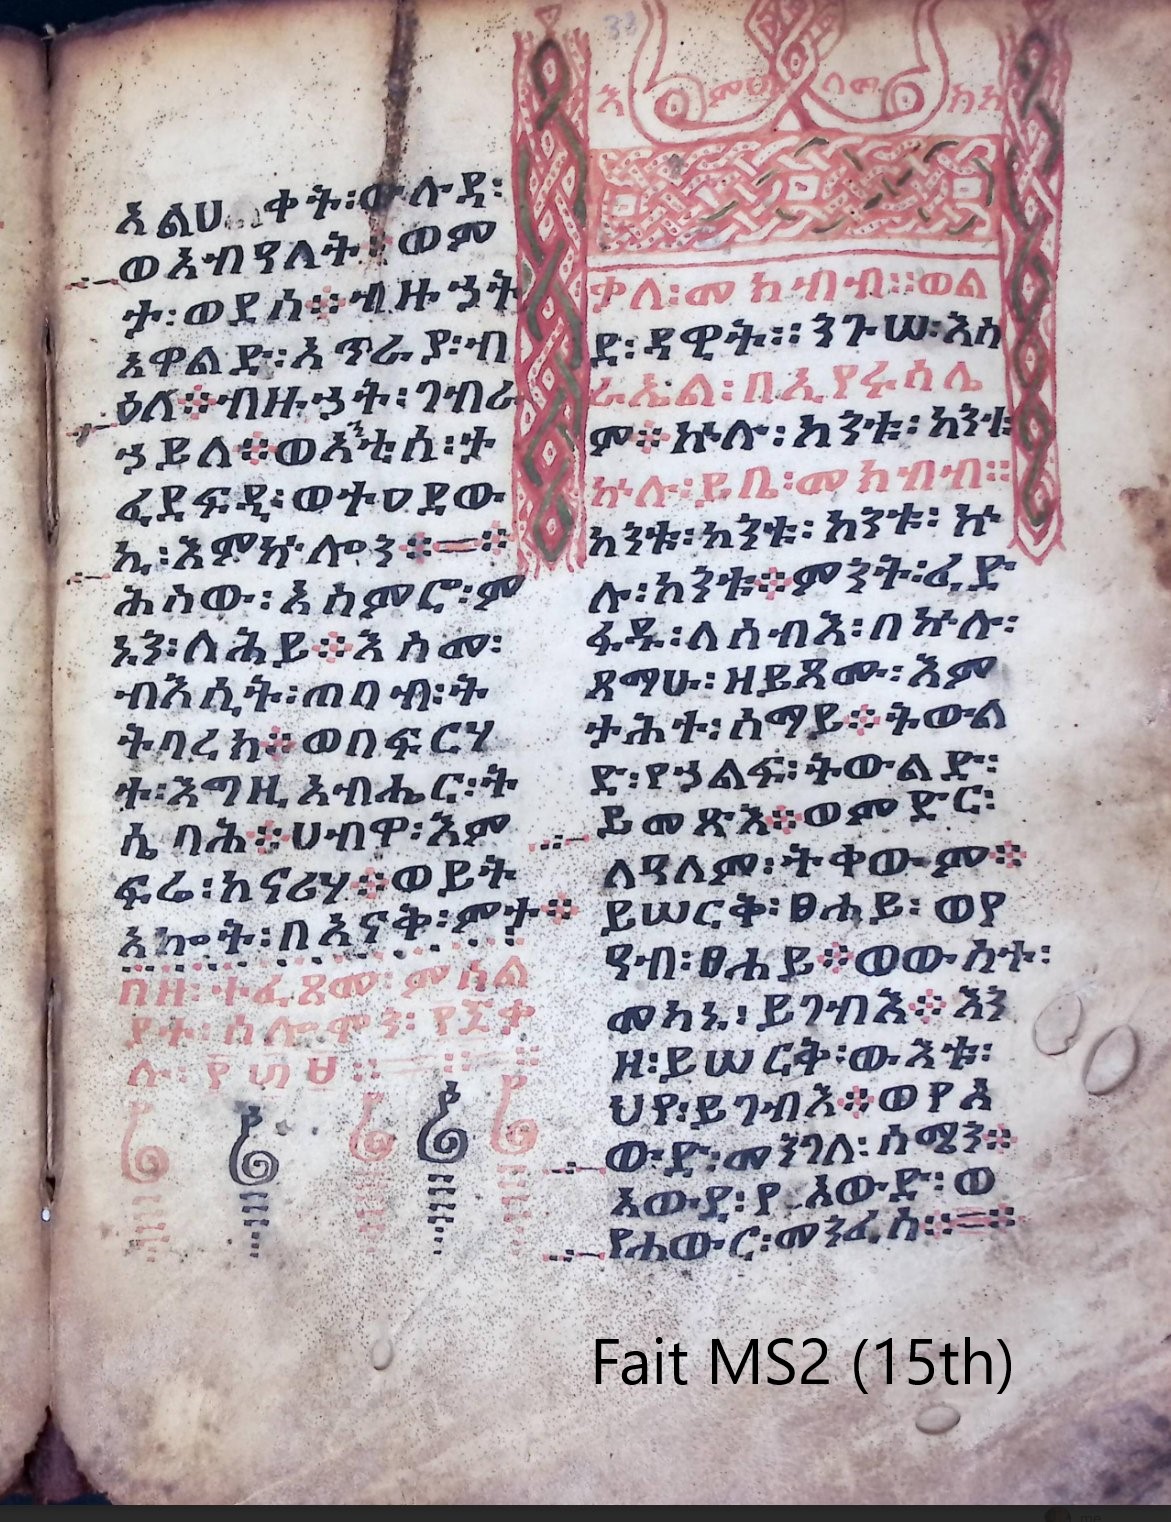 እልህቀት፡ውሉዳ፡
ወእብዓለት፡ወም
ታ፡ወደሰ፨ብዙኃት
አዋልድ፡አጥራያ፡ብ
ዕለ፨ብዙኃት፡ገብራ
ኃይለ፨ወአንቲሰ፡ታ
ፈደፍዲ፡ወተዐደው
ኪ፡እምኵሎን፨
ሕስው፡አስምሮ፡ም
ኔን፡ለሕይ፨እስመ፡
ብእሲት፡ጠባብ፡ት
ትባረክ፨ወበፍርሃ
ተ፡እግዚአብሔር፡ት
ሴባሕ፨ሀብዋ፡እም
ፍሬ፡ከናሪሃ፨ወይት
አኰት፡በአናቅ፡ምታ፨
በዝ፡ተፈጸመ፡ምሳል
ያተ፡ሰሎሞን፡
ቃለ፡መክብብ፡፡ወል
ድ፡ዳዊት፡፡ንጉሠ፡እስ
ራኤል፡በኢየሩሳሌ
ም፨ኵሉ፡ከንቱ፡ከንቱ፡
ኵሉ፡ይቤ፡መክብብ፡፡
ከንቱ፡ከንቱ፡ከንቱ፡ኵ
ሉ፡ከንቱ፨ምንት፡ፈድ
ፋዱ፡ለሰብእ፡በኵሉ፡
ጻማሁ፡ዘይጻሙ፡እም
ታሕተ፡ሰማይ፨ትውል
ድ፡የኃልፍ፡ትውልድ፡
ይመጽእ፨ወምድር፡
ለዓለም፡ትቀውም፨
ይሠርቅ፡ፀሐይ፡ወየ
ዓብ፡ፀሐይ፨ወውስተ፡
መካኑ፡ይገብእ፨እን
ዘ፡ይሠርቅ፡ውእቱ፡
ህየ፡ይገብእ፨ወየአ
ውድ፡መንገለ፡ሰሜን፨
አውዶ፡የአውድ፡ወ
የሐውር፡መንፈስ፨
Fait MS2 (15th)